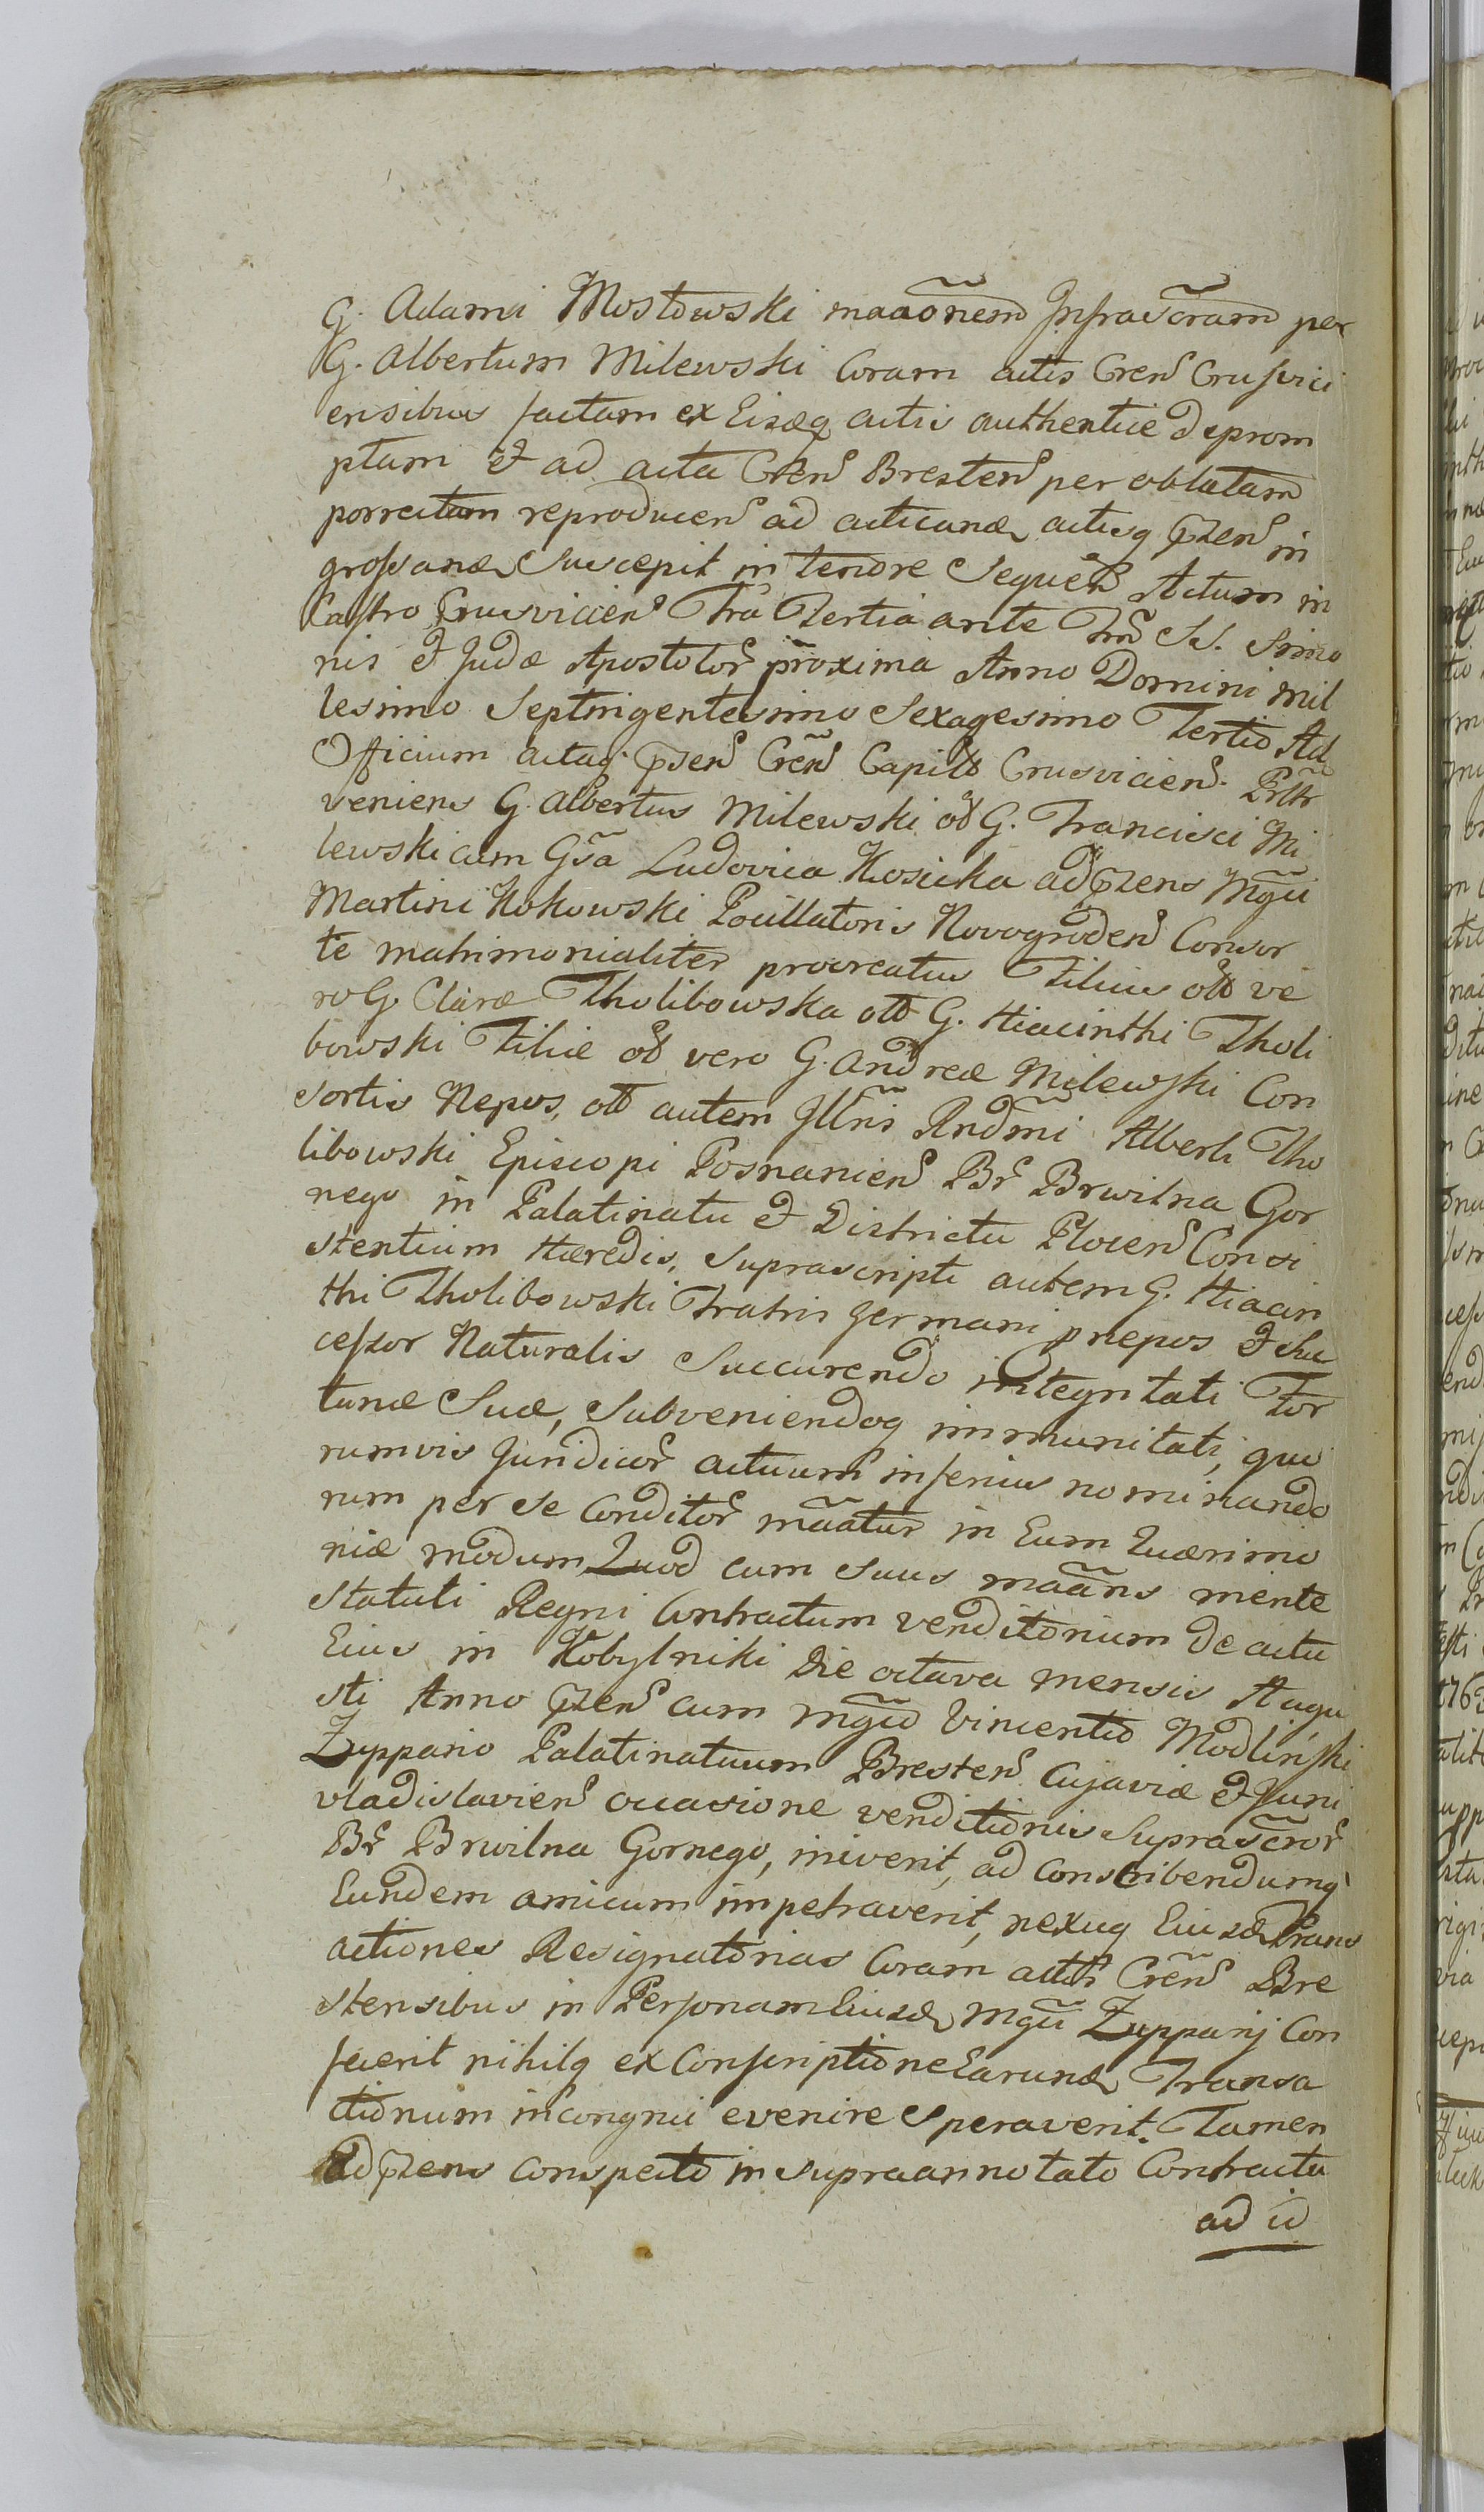 G. Adami Mostowski maãonem Infrascr̃am per
G. Albertum Milewski Coram actis Cren̄ Crusvici
ensibus factam ex Eisdeq actis authentice deprom
ptam et ad acta Cren̄ Bresten̄ per oblatam
porrectam reproducen̄ ad acticand actisq p̃zen̄ in
grossand suscepit in tenore sequen̄ Actum in
Castro Crusvicien̄ Fr̃a Tertia ante Fm̄ SS. Simo
nis et Judæ Apostolor̄ proxima Anno Domini mil
lesimo Septingentesimo Sexagesimo Tertio Ad
Officium actaq p̃sen̄ Cren̄ Capitl̃ Crusvicien̄. P̃rltr
veniens G. Albertus Milewski olt̃ G. Francisci Mi
lewski cum Gs̃a Ludovica Kosicka ad p̃zens Mgc̃i
Martini Kokowski Pocillatoris Novogroden̄ Consor
te matrimonialiter procreatus Filius olt̃ ve
ro G. Claræ Tholibowska olt̃ G. Hiacinthi Tholi
bowski Filiæ olt̃ vero G. Andreæ Milewski Con
sortis Nepos, olt̃ autem Jllr̃is Rnd̃mi Alberti Tho
libowski Episcopi Posnanien̄ Br̄ Brwilna Gor
nego in Palatinatu et Districtu Plocen̄ Consi
stentium Hæredis, suprascripti autem G. Hiacin
thi Tholibowski Fratris germani pnepos et Suc
cessor Naturalis Succurendo integritati For
tunæ Suæ, Subveniendoq immunitati, quo
rumvis Juridicor̄ actuum inferius nominando
rum per se Conditor̄ mãatur in Eum Quærimo
niæ modum Quod cum suus mãans mente
Statuti Regni Contractum venditorium de actu
Eius in Kobylniki Die octava mensis Augu
sti Anno p̃zen̄ cum Mgc̃o Vincentio Modliński
Zuppario Palatinatuum Bresten̄ Cujaviæ et Juni
vladislavien̄ occasione venditionis Suprascr̃or̄
Br̄ Brwilna Gornego, iniverit, ad Conscribendumq
Eundem amicum impetraverit, nexuq Eiusd Trans
actiones Resignatorias Coram actis Cren̄ Bre
stensibus in Personam Eiusd Mgc̃i Zupparij Con
fecerit nihilq ex Conscriptione Earund Transa
ctionum incongrui evenire speraverit. Tamen
Ad p̃zens conspecto in supraannotato Contractu
ad id